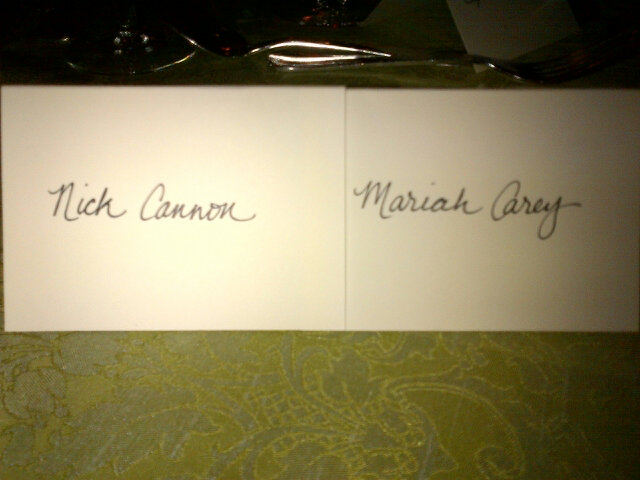 Nick Cannon
Mariah Carey